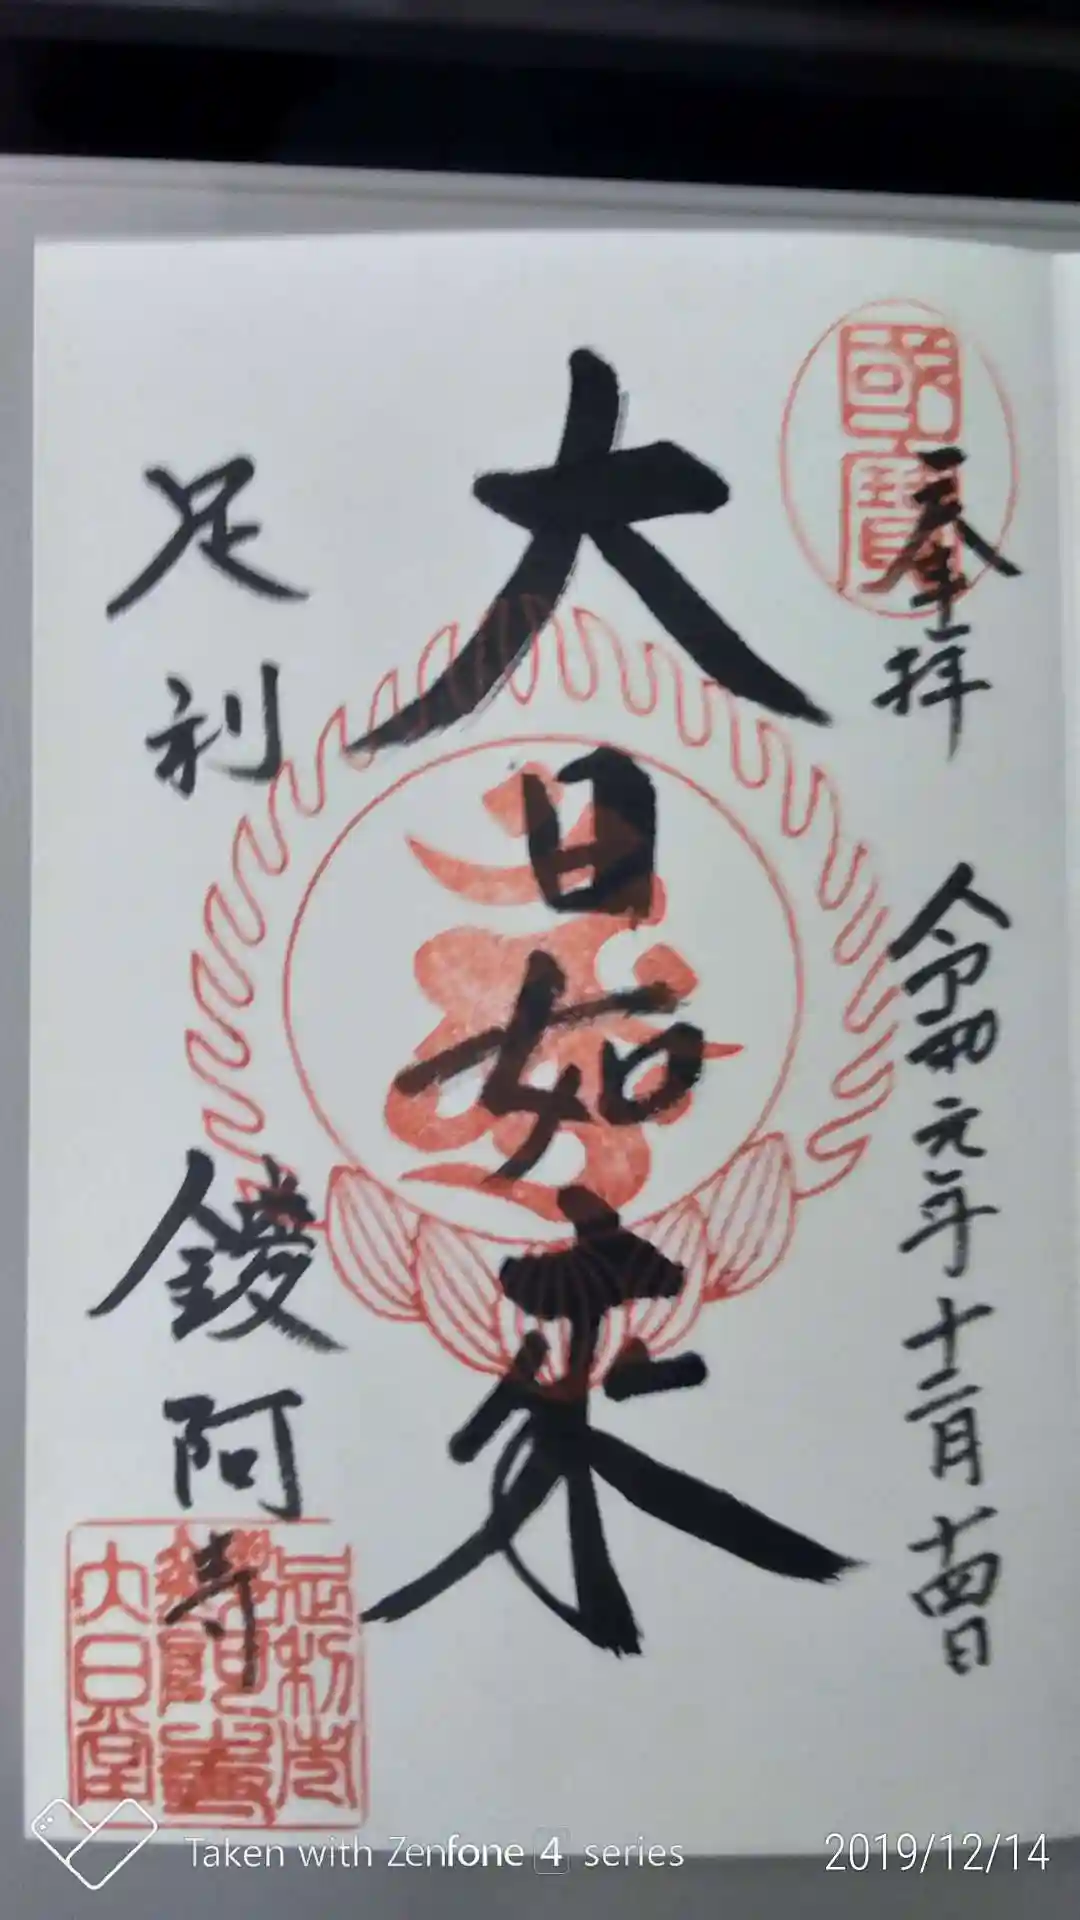 國寶
奉拝
令和元年十二月十四日
大日如来
足利
鑁阿寺
足利市
鑁阿寺
大日堂
Taken with Zenfone 4 series
2019/12/14